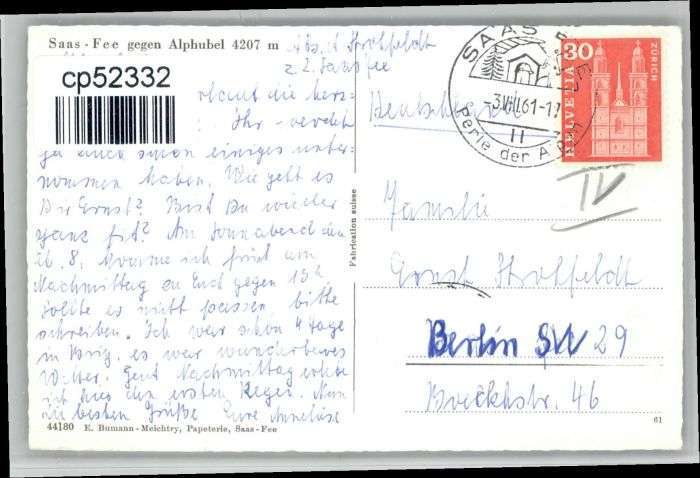 Saas-Fee gegen Alphubel 4207 m
Abs. A Strohfeldt
z. Z. Saas Fee
cp52332
Deutschland
SAAS-FEE
-3.VIII.61-17
II
Perle der Alpen
30
HELVETIA
ZÜRICH
IV
die herz-
Ihr
ja auch schon einiges unter-
nommen haben. Wie geht es
Dir Ernst? Bist Du wieder
ganz fit? Am Sonnabend den
26. 8. komme ich früh am
Nachmittag zu Euch gegen 15h
Sollte es nicht passen, bitte
schreiben. Ich war schon 4 Tage
in Brig, es war wunderbares
Wetter. Heut Nachmittag erlebe
ich hier den ersten Regen. Nun
die besten Grüße Eure Anneliese
Fabrication suisse
Familie
Ernst Strohfeldt
Berlin SW 29
Bockhstr. 46
44180 E. Bumann-Meichtry, Papeterie, Saas-Fee
61